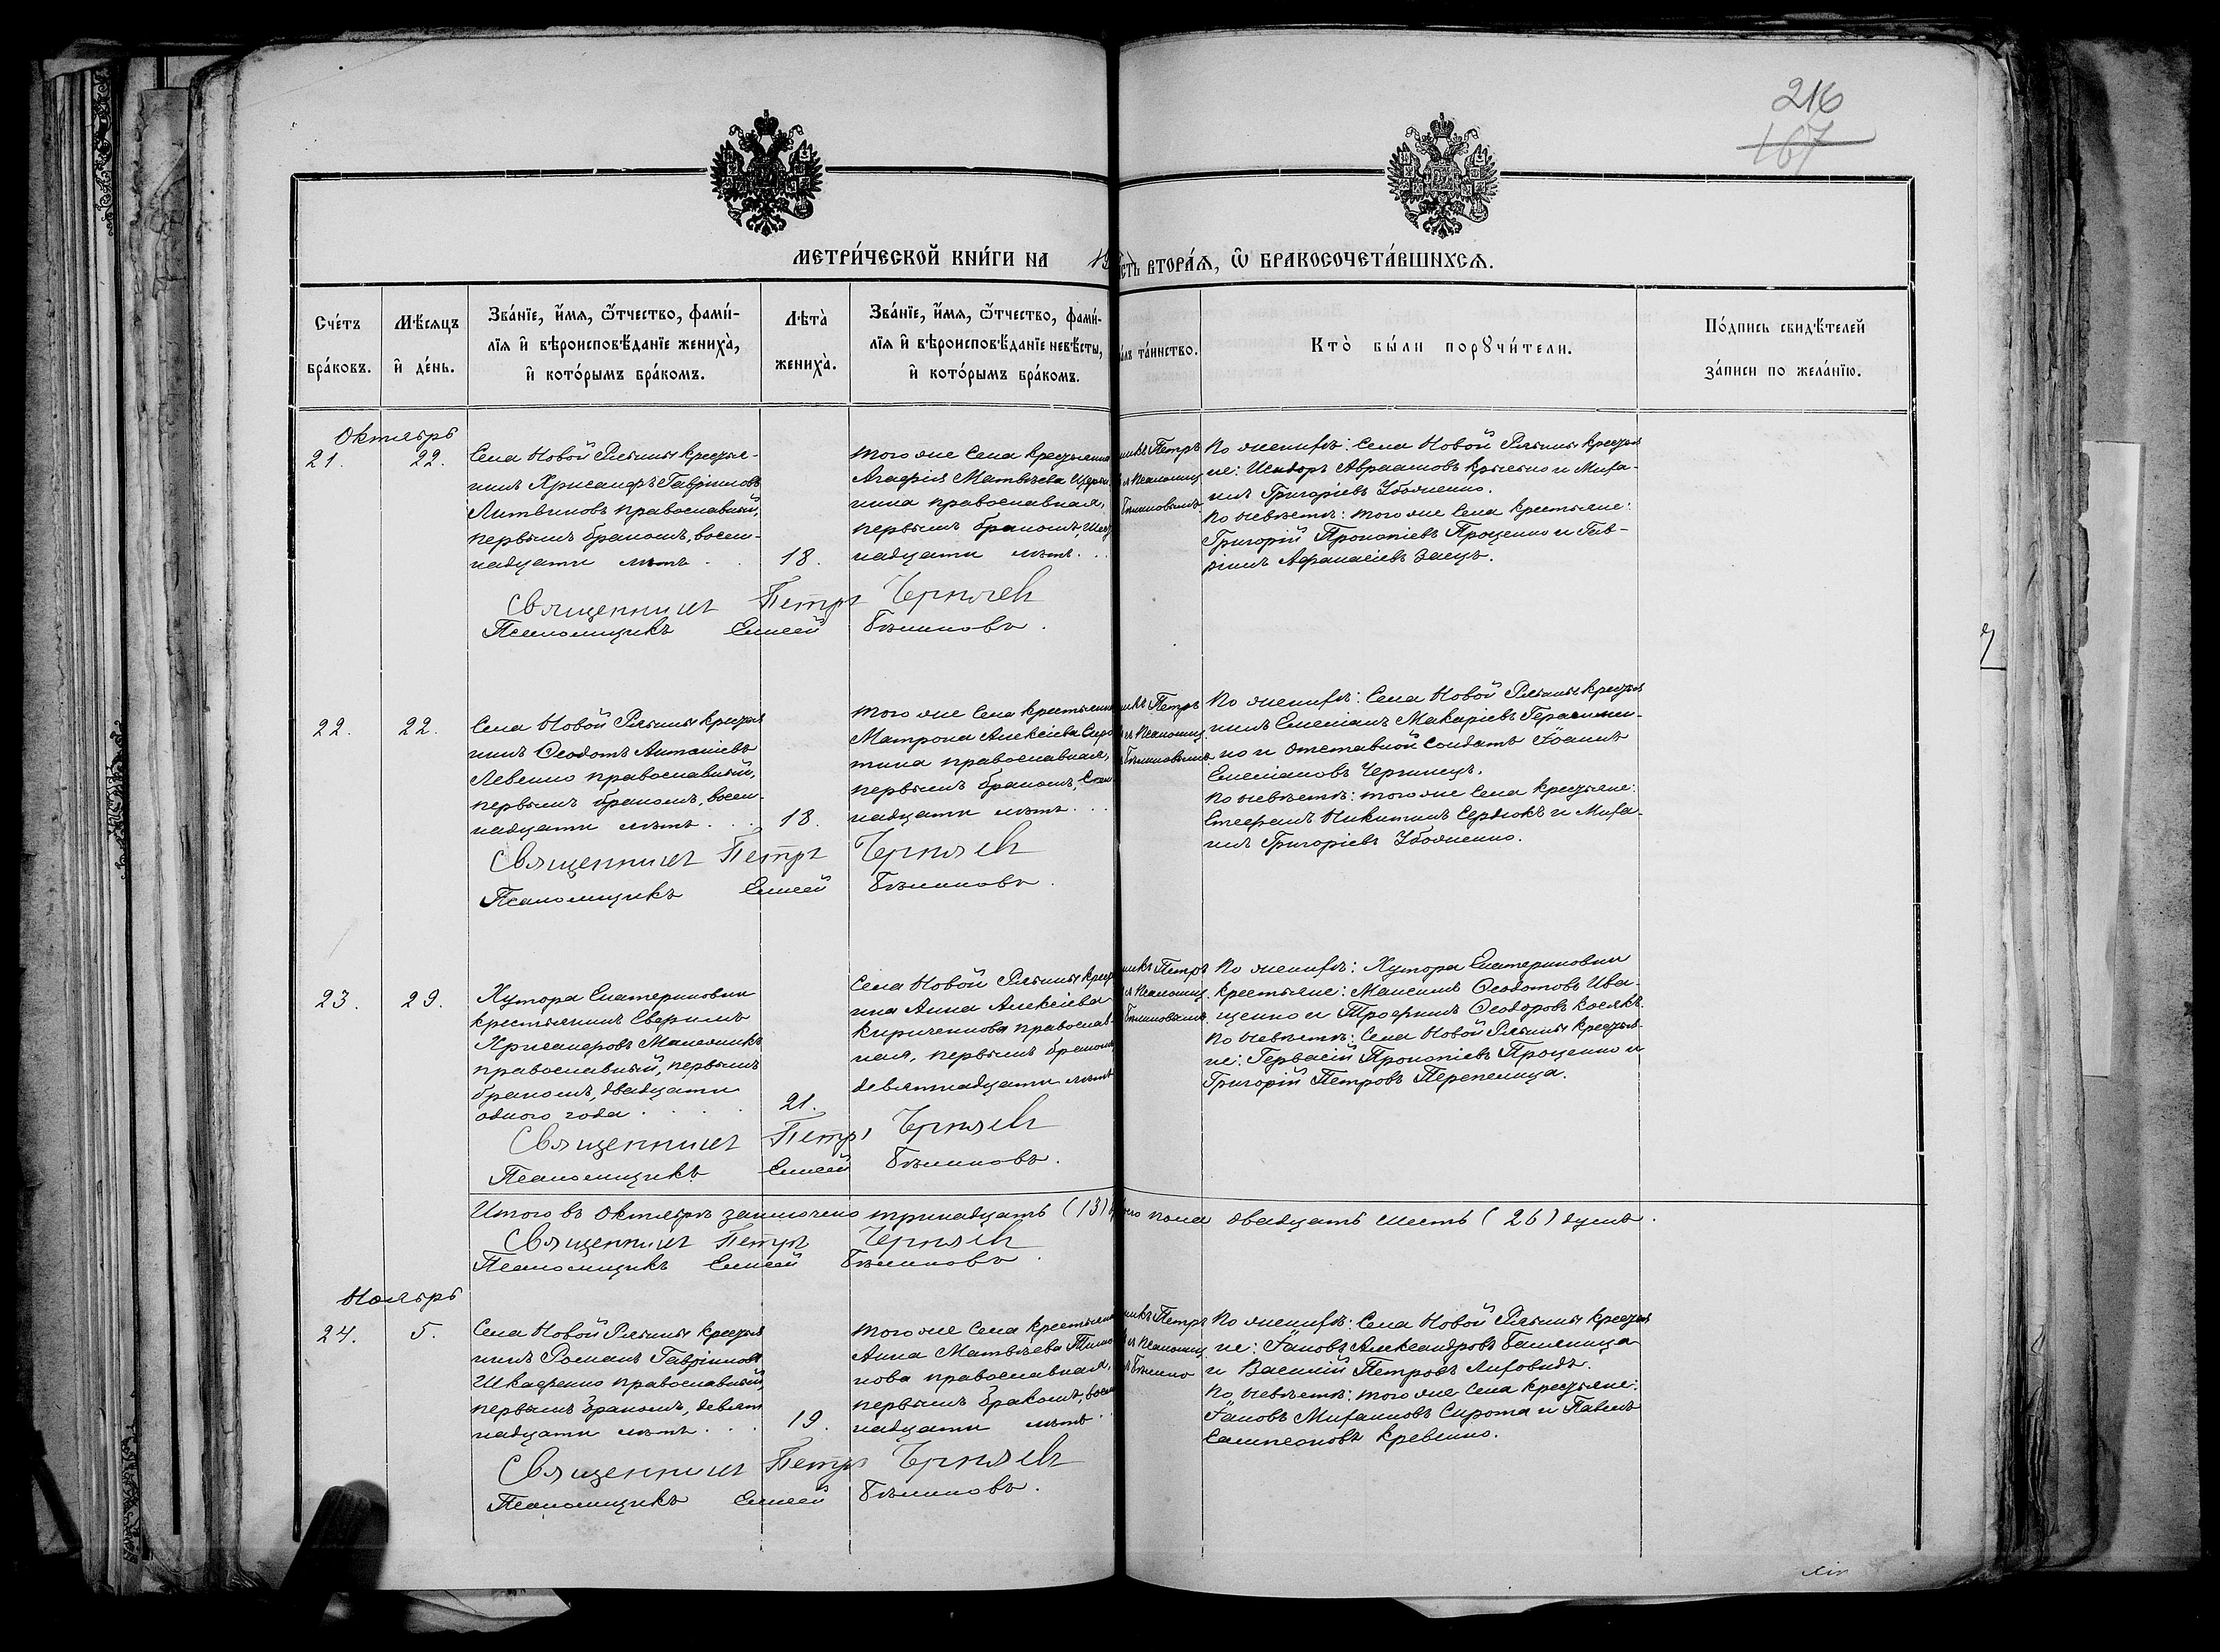 216
167
МЕТРИ́ЧЕСКОЙ КНИ́ГИ НА 19
СТЬ ВТОРА́Я, Ѡ БРАКОСОЧЕТА́ВШИХСЯ.
Сче́тъ бра́ковъ.
Мѣ́сяцъ и҆ де́нь.
Зва́нїе, и҆́мя, ѻ҆́тчество, фами́-
лїя и҆ вѣроисповѣ́данїе жениха̀,
и҆ кото́рымъ бра́комъ.
Лѣта̀ жениха̀.
Зва́нїе, и҆́мя, ѻ҆́тчество, фами́-
лїя и҆ вѣроисповѣ́данїе невѣ́сты,
и҆ кото́рымъ бра́комъ.
а́лъ та́инство.
Кто̀ бы́ли порꙋчи́тели.
По́дпись свидѣ́телей
за́писи по жела́нїю.
Октябрь
21. 22.
Села Новой Рябины крестья-
нинъ Хрисанфъ Гавріиловъ
Литвиновъ православный,
первымъ бракомъ, восем-
надцати лѣтъ . . 18.
того же села крестьянка
Агафія Матвѣева
нина православная,
первымъ бракомъ, шест
надцати лѣтъ . .
никъ Петръ
и Псаломщ
Бѣликовымъ
По женихѣ: Села Новой Рябины крестья
не: Исидоръ Авраамовъ и Миха-
илъ Григоріевъ Убоженко.
По невѣстѣ: того же села крестьяне:
Григорій Прокопіевъ Проценко и Гав-
ріилъ Афанасіевъ Заецъ.
Священникъ Петръ Черняевъ
Псаломщикъ Елисей Бѣликовъ.
22. 22.
Села Новой Рябины крестья
нинъ Ѳеодотъ Антоніевъ
Левенко православный,
первымъ бракомъ, восем-
надцати лѣтъ . . . 18.
того же села крестьянка
Матрона Алексіева Сиро
тина православная,
первымъ бракомъ,
надцати лѣтъ . .
никъ Петръ
и Псаломщ
Бѣликовымъ
По женихѣ: Села Новой Рябины крестья
нинъ Емеліанъ Макаріевъ Герасимен-
ко и отставной солдатъ Іоаннъ
Емеліановъ Чернецъ.
По невѣстѣ: того же села крестьяне:
Стефанъ Никитинъ Сердюкъ и Миха-
илъ Григоріевъ Убоженко.
Священникъ Петръ Черняевъ
Псаломщикъ Елисей Бѣликовъ.
23. 29.
Хутора Екатериновки
крестьянинъ Северинъ
Хрисанфовъ
православный, первымъ
бракомъ, двадцати
одного года . . . . 21.
Села Новой Рябины крестья
нка Анна Алексіева
Кириченкова православ
ная, первымъ бракомъ,
девятнадцати лѣтъ
никъ Петръ
и Псаломщ
Бѣликовымъ
По женихѣ: Хутора Екатериновки
крестьяне: Максимъ Ѳеодотовъ Ива-
щенко и Трофимъ Ѳеодоровъ Косякъ.
По невѣстѣ: Села Новой Рябины крестья-
не: Гервасій Прокопіевъ Проценко и
Григорій Петровъ Перепелица.
Священникъ Петръ Черняевъ
Псаломщикъ Елисей Бѣликовъ.
Итого въ Октябрѣ заключено тринадцать (13) его пола двадцать шесть (26) душъ.
Священникъ Петръ Черняевъ
Псаломщикъ Елисей Бѣликовъ.
Ноябрь
24. 5.
Села Новой Рябины крестья
нинъ Романъ Гавріиловъ
Шкафенко православный,
первымъ бракомъ, девят
надцати лѣтъ . . . 19.
того же села крестьянка
Анна Матвѣева
нова православная,
первымъ бракомъ, восем
надцати лѣтъ .
никъ Петръ
и Псаломщ
По женихѣ: Села Новой Рябины крестья
не: Іаковъ Александровъ Башлница
и Василій Петровъ Лиховидъ.
По невѣстѣ: того же села крестьяне:
Іаковъ Михаиловъ Сирота и Павелъ
Сампсоновъ Кревенко.
Священникъ Петръ Черняевъ
Псаломщикъ Елисей Бѣликовъ.